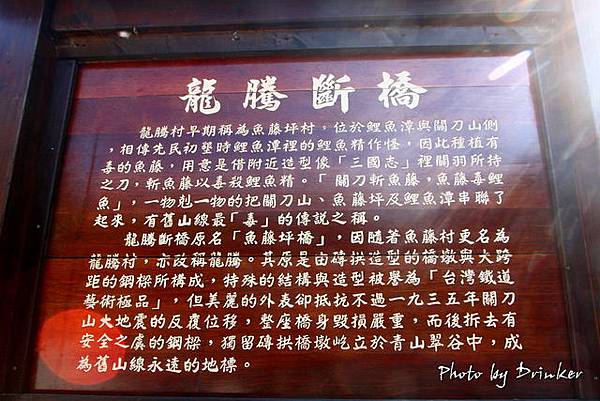 龍騰斷橋
龍騰村早期稱為魚藤坪村，位於鯉魚潭與關刀山側
，相傳先民初墾時鯉魚潭裡的鯉魚精作怪，因此種植有
毒的魚藤，用意是借附近造型像「三國志」裡關羽所持
之刀，斬魚藤以毒殺鯉魚精。「關刀斬魚藤，魚藤毒鯉
魚」，一物剋一物的把關刀山、魚藤坪及鯉魚潭串聯了
起來，有舊山線最「毒」的傳說之稱。
龍騰斷橋原名「魚藤坪橋」，因隨著魚藤村更名為
龍騰村，亦改稱龍騰。其原是由磚拱造型的橋墩與大跨
距的鋼樑所構成，特殊的結構與造型被譽為「台灣鐵道
藝術極品」，但美麗的外表卻抵抗不過一九三五年關刀
山大地震的反覆位移，整座橋身毀損嚴重，而後拆去有
安全之虞的鋼樑，獨留磚拱橋墩屹立於青山翠谷中，成
為舊山線永遠的地標。
Photo by Drinker